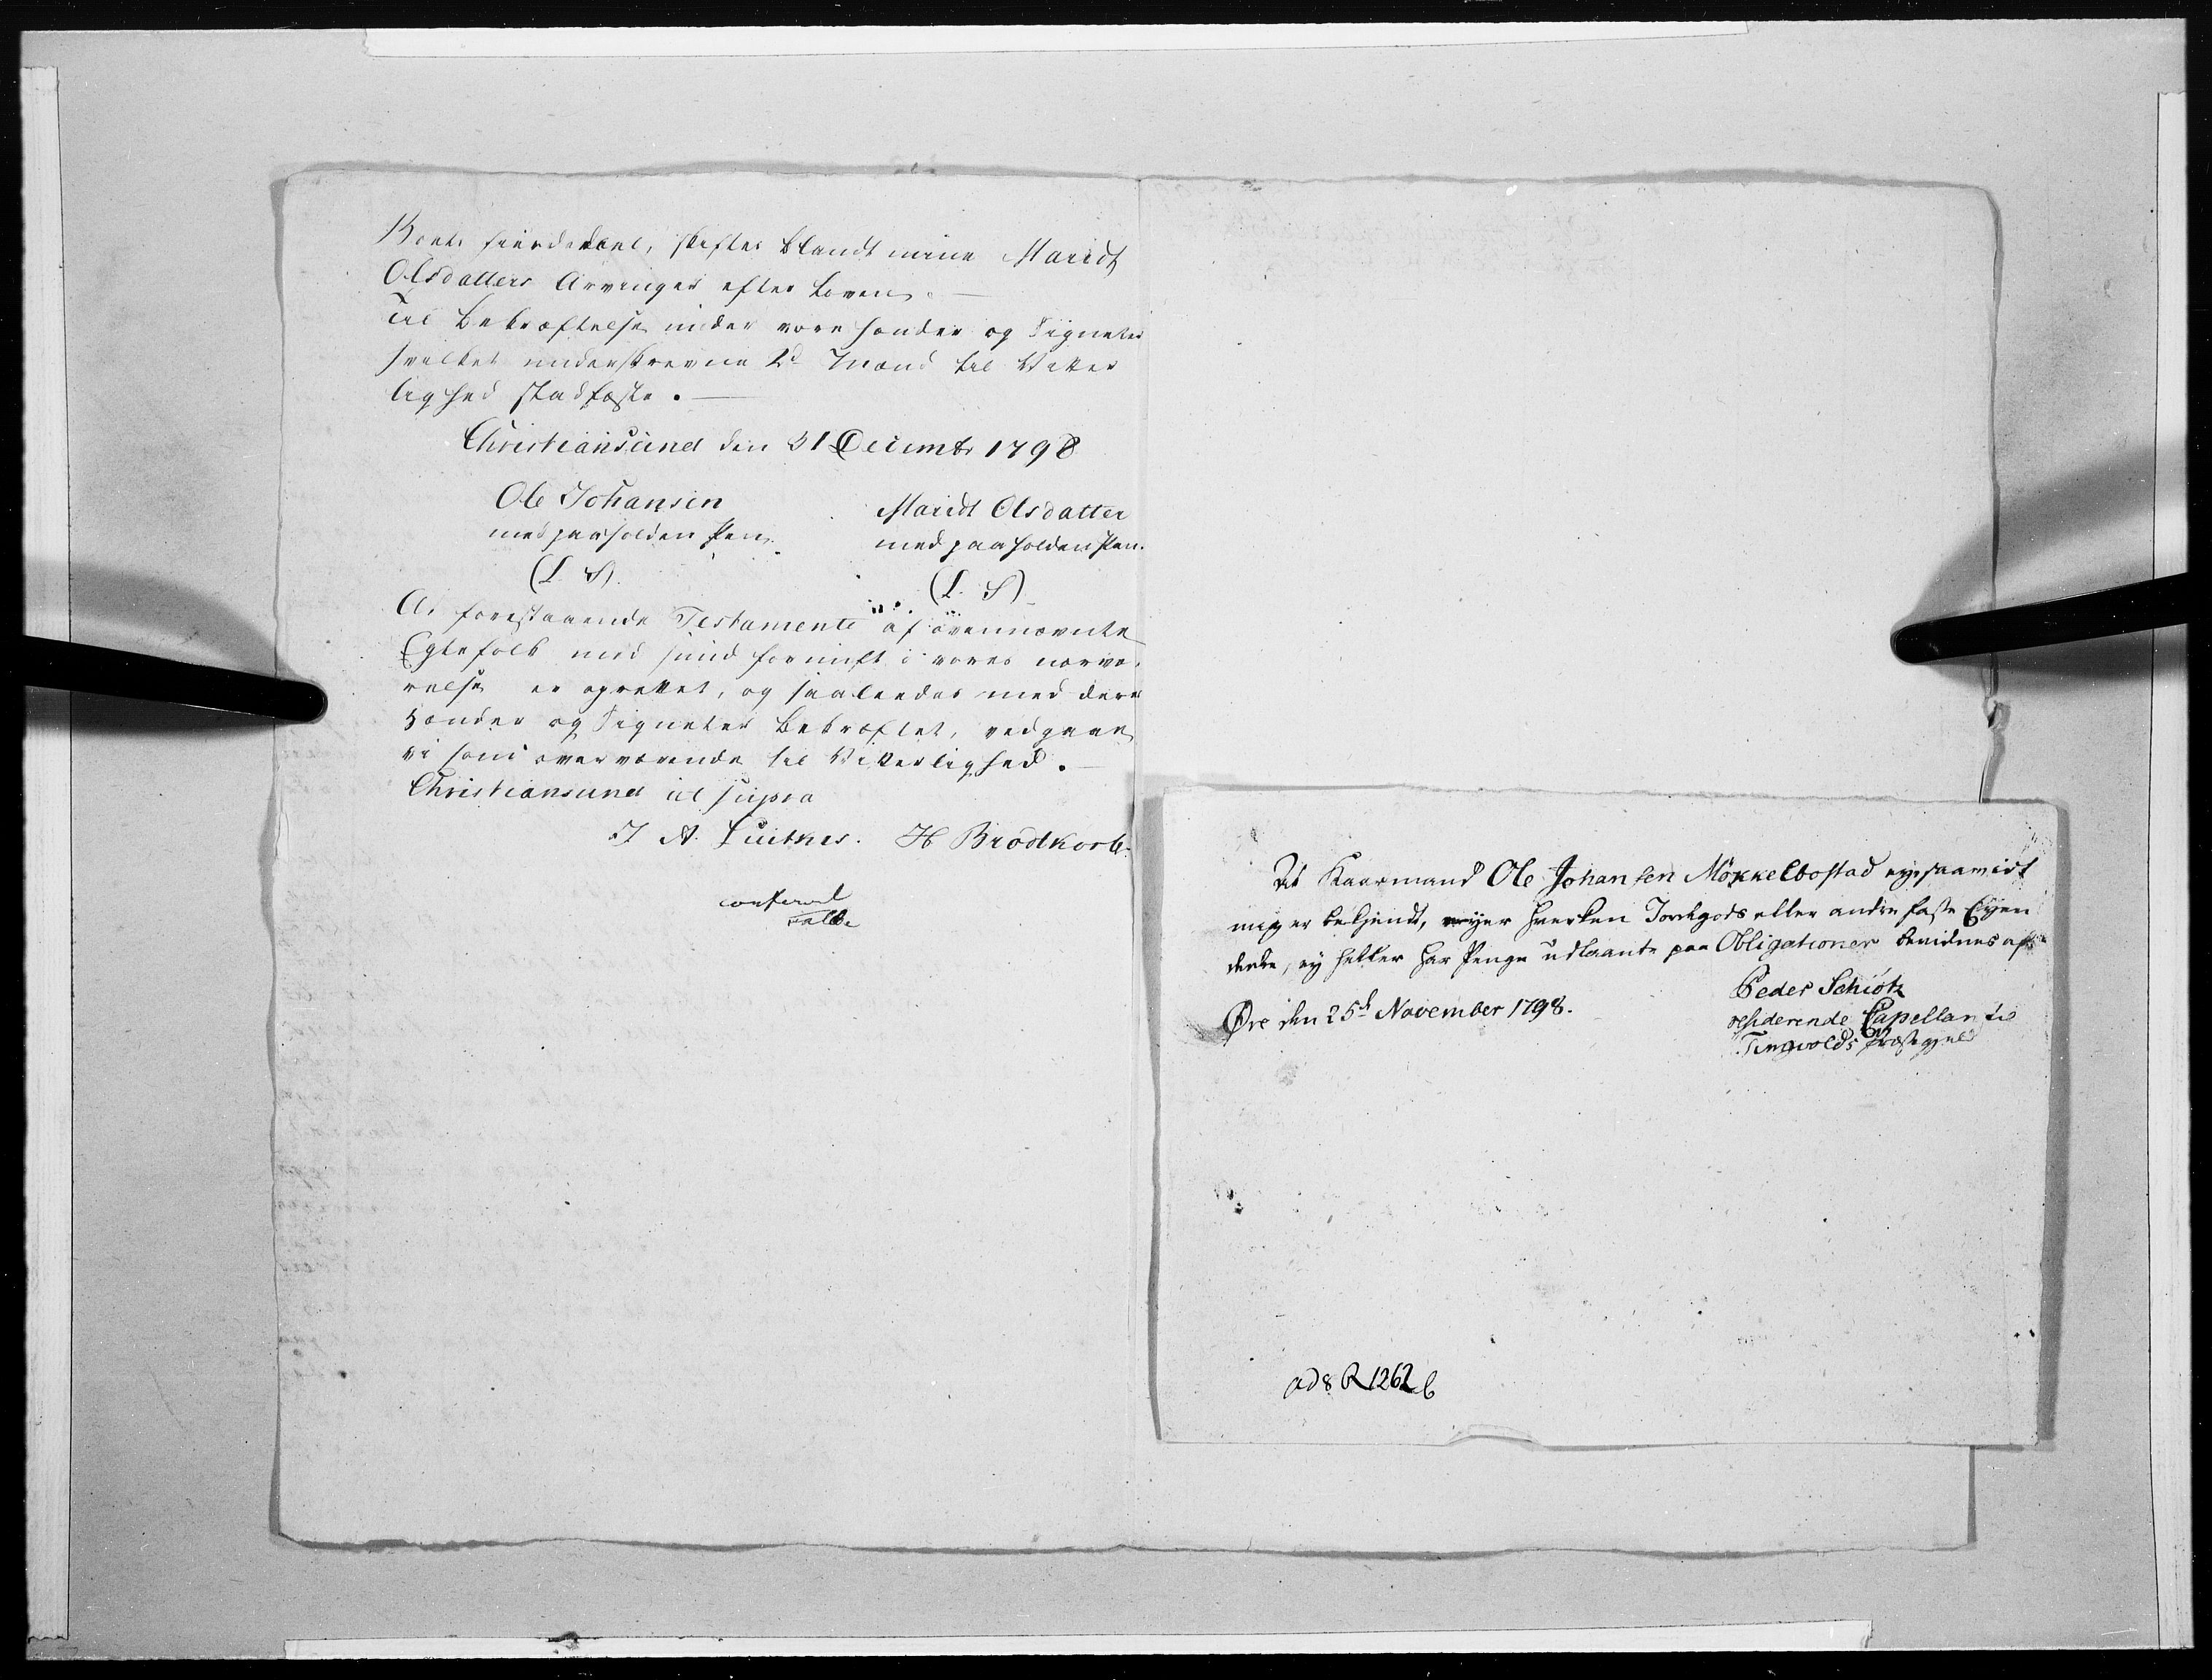 Boets fierdedeel, skiftes blandt mine Maridt
Olsdatters Arvinger efter Loven.
Til Bekræftelse under vore Hænder og Signeter
hvilket underskrevne 2de Mænd til Vitter
lighed stadfæste.
Christiansund den 31 Decembr 1798
Ole Johansen
med paaholden Pen.
(L. S).
Maridt Olsdatter
med paaholden Pen.
(L. S)
At forestaaende Testamente af ovennævnte
Egtefolk med sund fornuft i vores nærvæ-
relse er oprettet, og saaledes med deres
Hænder og Signeter Bekræftet, vedgaaer
vi som overværende til Vitterlighed.
Christiansund ut supra
J A. Luitkes. H Brodtkorb.
confererd
Falbe
At Kaarmand Ole Johansen Møkkelbostad eyer saavidt
mig er bekjendt, hverken Jordegods eller andre faste Eyen
dele, ey heller har Penge udlaante paa Obligationer bevidnes af
Peder Schiötz
residerende Capellan til
Tingvolds Præstegjeld
Øre den 25de November 1798.
ad 8 R 1262 b